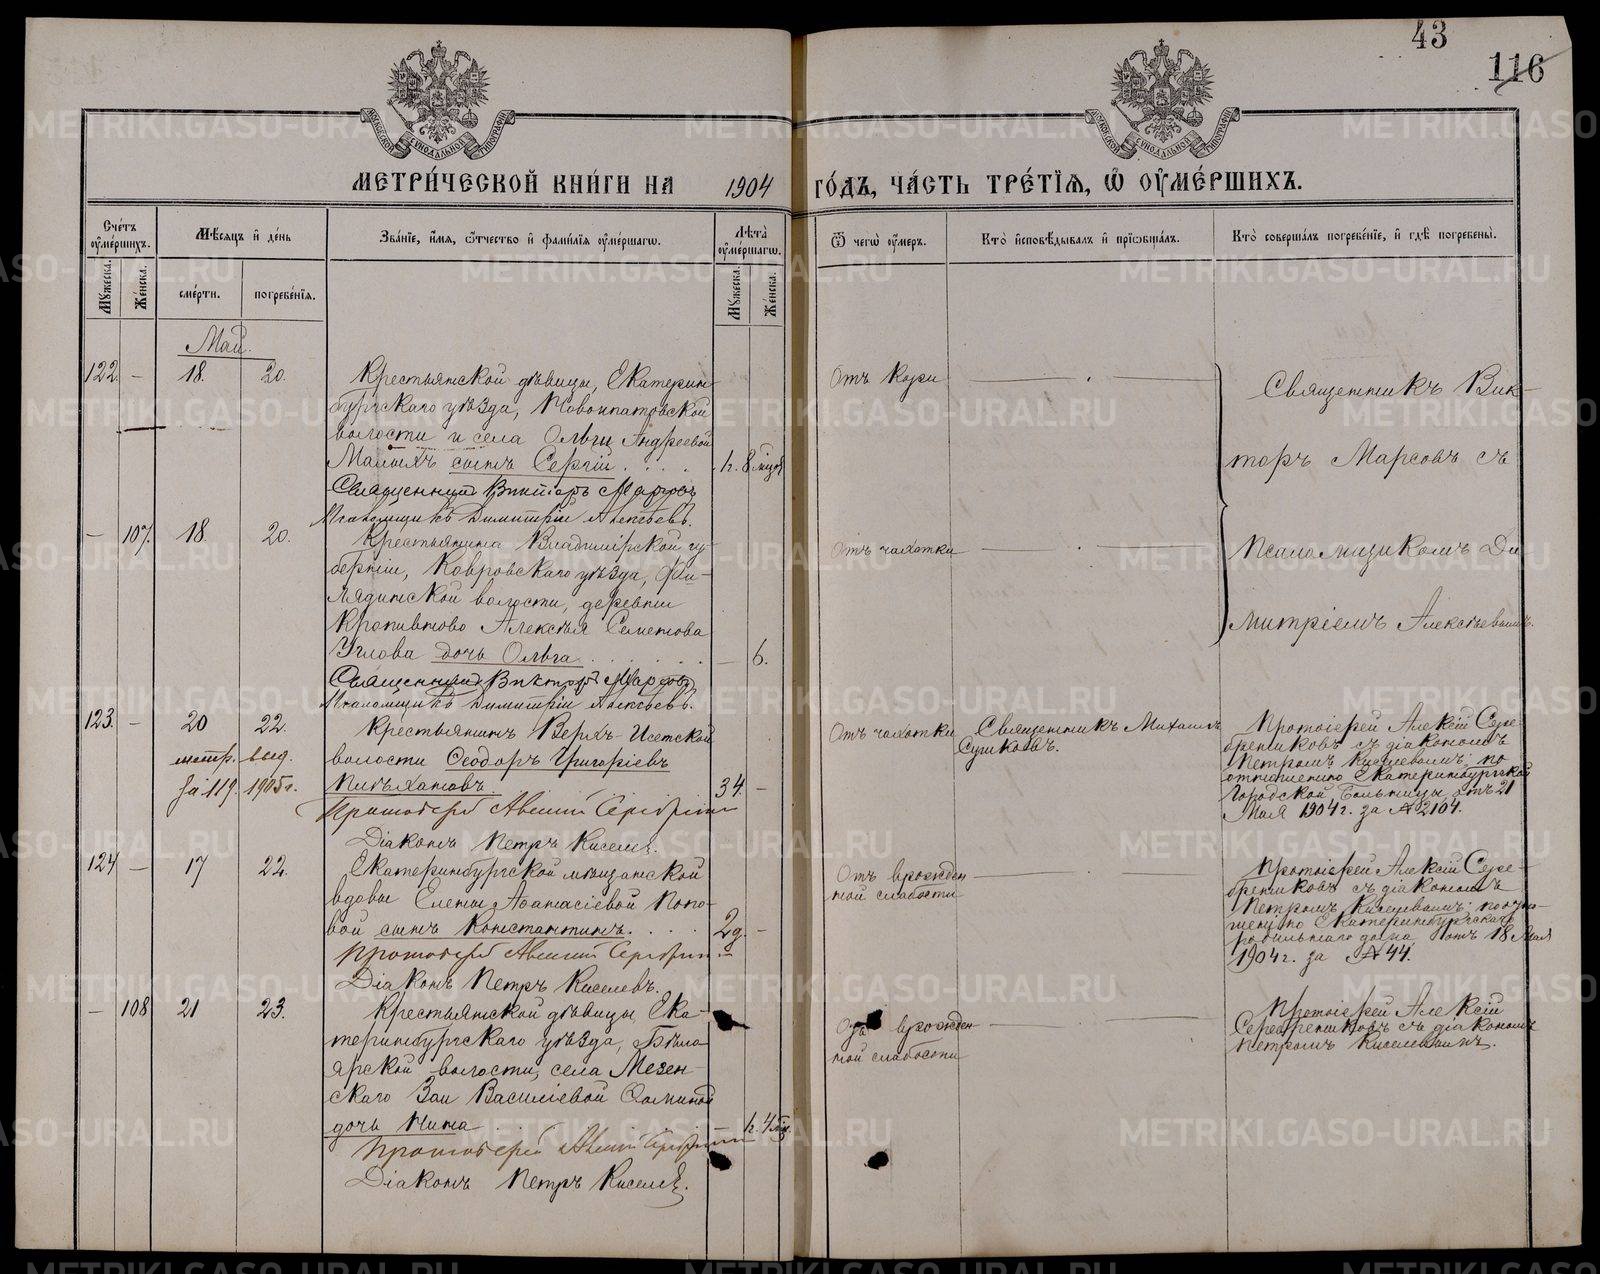 43
116
МЕТРИ́ЧЕСКОЙ КНИ́ГИ НА 1904 ГО́ДЪ, ЧА́СТЬ ТРЕ́ТІѦ, Ѡ ОУ҆МЕ́РШИХЪ.
Сче́тъ оу҆ме́ршихъ.
Мѣ́сяцъ и҆ де́нь
Зва́нїе, и҆́мя, ѻ҆́тчество и҆ фами́лїя оу҆ме́ршагѡ.
Лѣ́та оу҆ме́ршагѡ.
Ѿ чегѡ̀ оу҆́меръ.
Кто̀ и҆сповѣ́дывалъ и҆ прїѡбща́лъ.
Кто̀ соверша́лъ погребе́нїе, и҆ гдѣ̀ погребены̀.
Мꙋ́жеска.
Же́нска.
сме́рти.
погребе́нїя.
Мꙋ́жеска.
Же́нска.
Май.
122 — 18. 20.
Крестьянской дѣвицы, Екатерин-
бургскаго уѣзда, Новоипатовской
волости и села Ольги Андреевой
Малыхъ сынъ Сергій . . . .
Священникъ Викторъ Марсовъ
Псаломщикъ Димитрій Алексѣевъ.
Отъ кори
Священникъ Вик-
торъ Марсовъ съ
псаломщикомъ Ди
митріемъ Алексѣевымъ.
— 107. 18. 20.
Крестьянина Владимірской гу-
берніи, Ковровскаго уѣзда,
волости, деревни
Алексѣя Семенова
Углова дочь Ольга . . . . . . — 6.
Священникъ Викторъ Марсовъ
Псаломщикъ Димитрій Алексѣевъ.
Отъ чахотки
123. — 20 22.
метр. выд.
за 119. 1905 г.
Крестьянинъ Верхъ-Исетской
волости Ѳеодоръ Григоріевъ
34. —
Протоіерей Алексій
Діаконъ Петръ Киселевъ.
Отъ чахотки
Священникъ Михаилъ
Сушковъ.
Протоіерей Алексій Сере-
бренниковъ съ діакономъ
Петромъ Киселевымъ; по
отношенію Екатеринбургской
Городской Больницы отъ 21
Мая 1904 г. за № 2104.
124 — 17 22.
Екатеринбургской мѣщанской
вдовы Елены Аѳанасіевой Попо-
вой сынъ Константинъ. . . . 2 д. —
Протоіерей Алексій
Діаконъ Петръ Киселевъ.
Отъ врожден
ной слабости
Протоіерей Алексій Сере-
бренниковъ съ діакономъ
Петромъ Киселевымъ; по отно-
шенію Екатеринбургскаго
родильнаго дома отъ 18 Мая
1904 г. за № 44.
— 108 21 23.
Крестьянской дѣвицы, Ека-
теринбургскаго уѣзда, Бѣло
ярской волости, села Мезен-
скаго Зои Василіевой
дочь Нина
Протоіерей Алексій
Діаконъ Петръ Киселевъ.
Отъ врожден
ной слабости
Протоіерей Алексій
Серебренниковъ съ діакономъ
Петромъ Киселевымъ.
METRIKI.GASO-URAL.RU